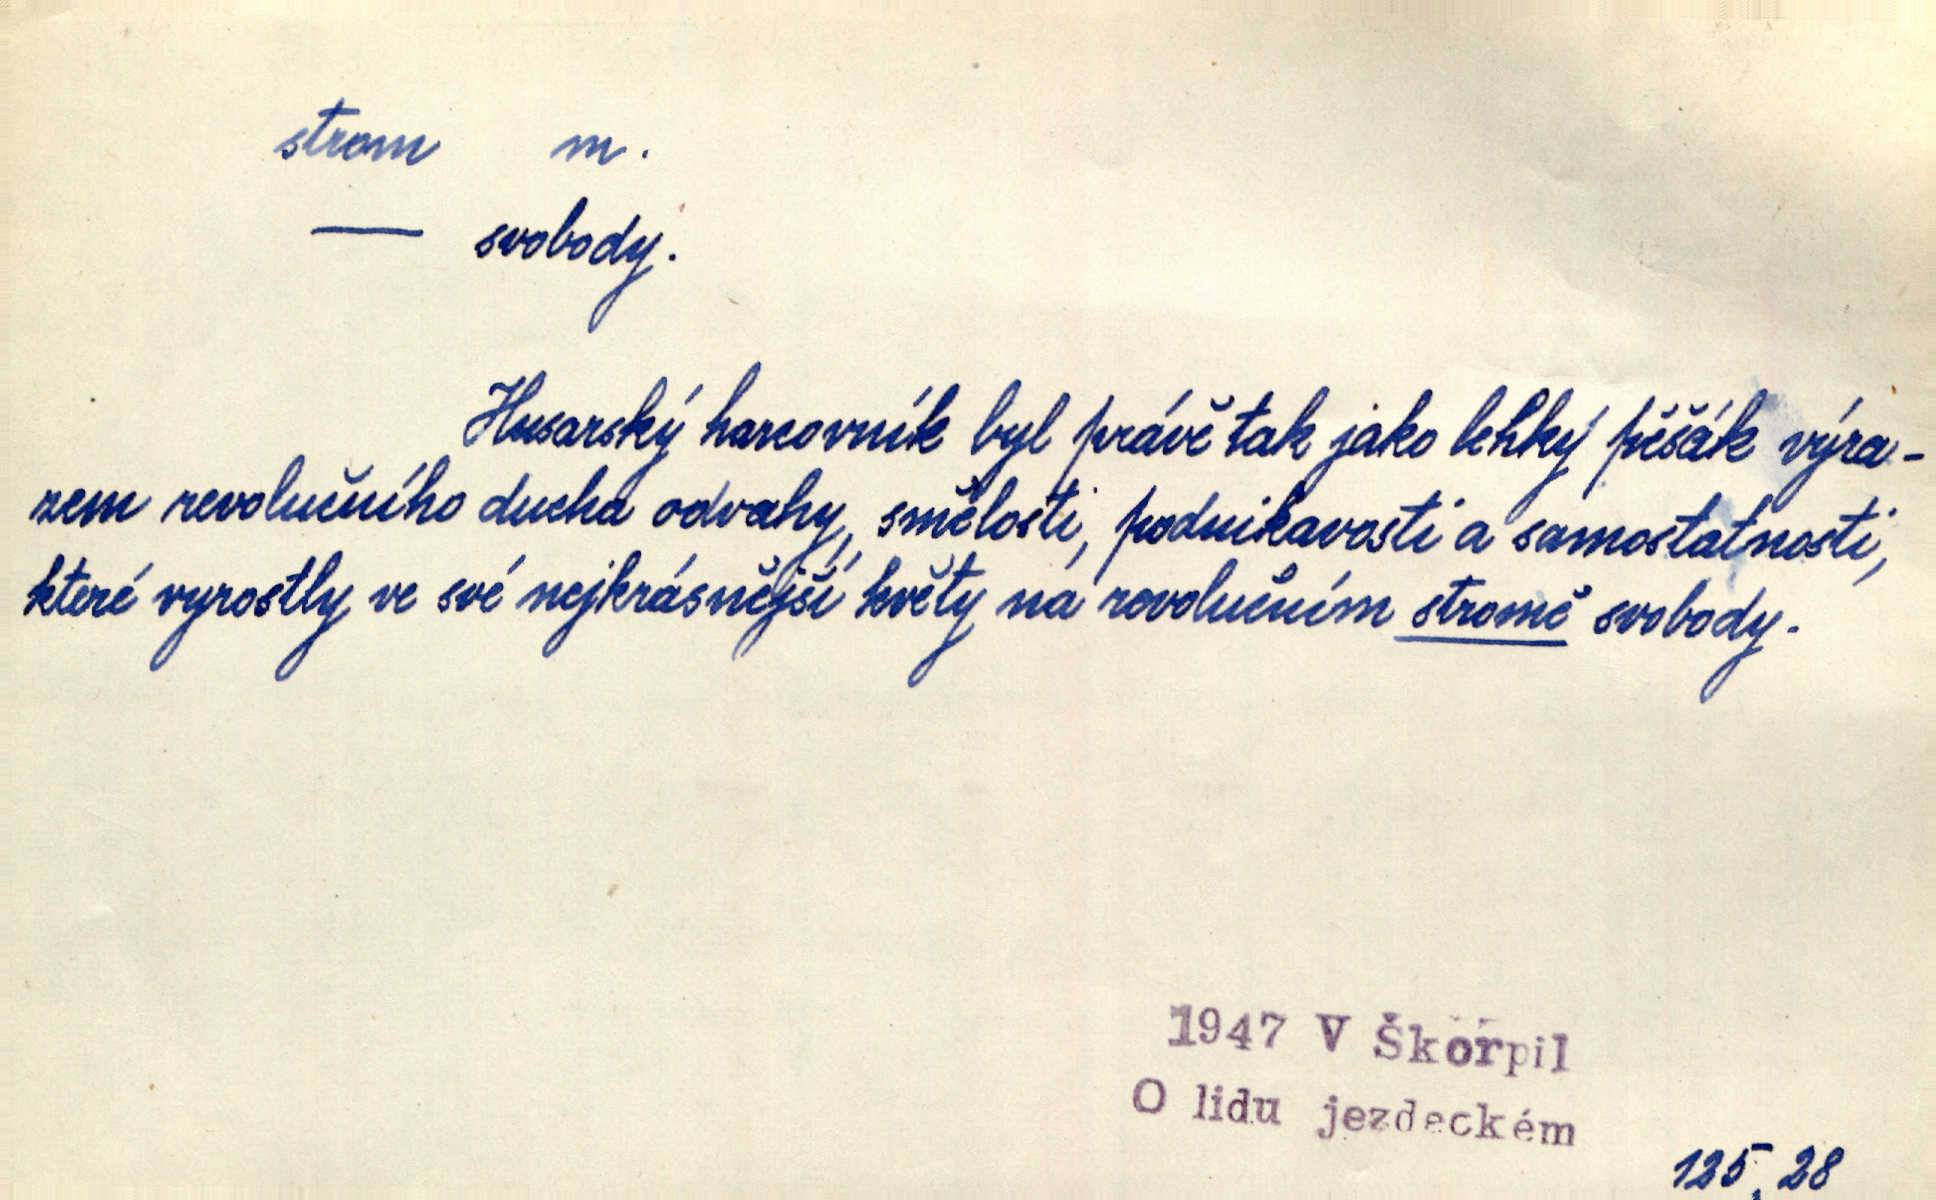 strom m.
— svobody.
Husarský harcovník byl právě tak jako lehký pěšák výra-
zem revolučního ducha odvahy, smělosti, podnikavosti a samostatnosti,
které vyrostly ve své nejkrásnější květy na revolučním stromě svobody.
1947 V Škorpil
O lidu jezdeckém
125, 28